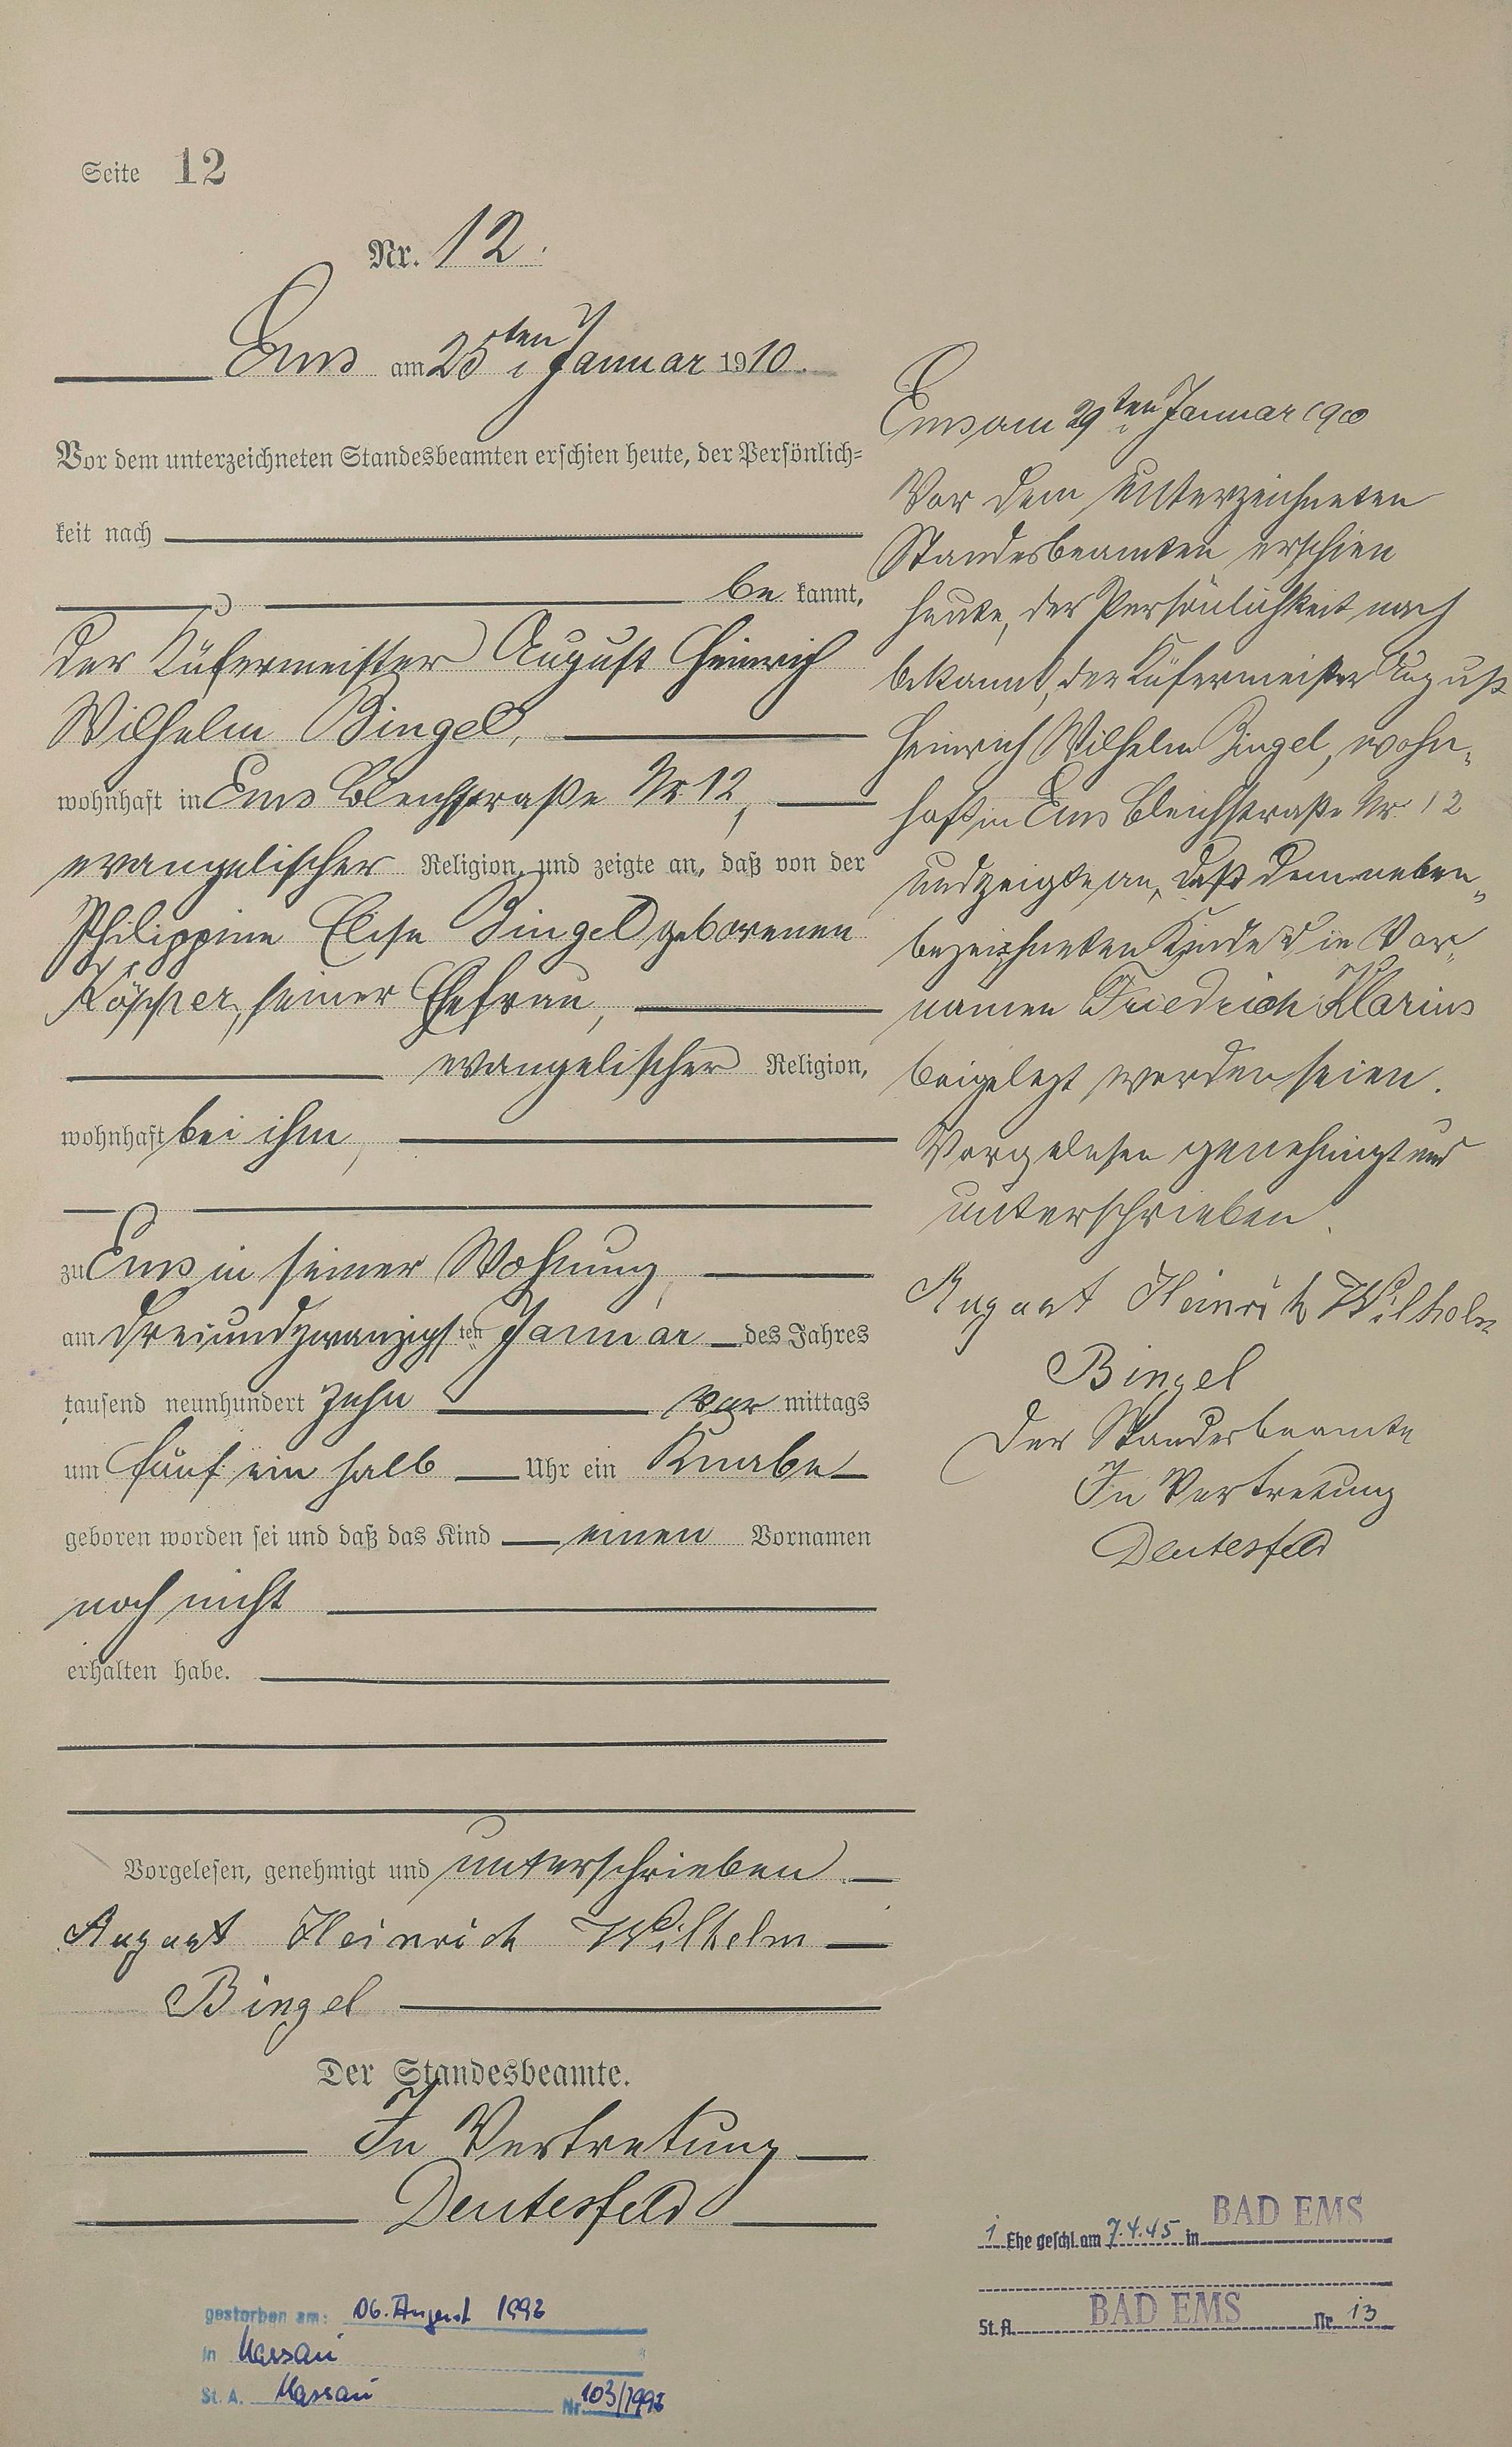 Seite 12
Nr. 12.
Ems am 25ten Januar 1910.
Vor dem unterzeichneten Standesbeamten erschien heute, der Persönlich=
keit nach
be kannt,
der Küfermeister August Heinrich
Wilhelm Bingel,
wohnhaft in Ems Bleichstraße Nr 12,
evangelischer Religion, und zeigte an, daß von der
Philippine Elise Bingel geborenen
seiner Ehefrau,
evangelischer Religion,
wohnhaft bei ihm,
zu Ems in seiner Wohnung,
am dreiundzwanzigsten Januar des Jahres
tausend neunhundert zehn vor mittags
um fünf ein halb Uhr ein Knabe
geboren worden sei und daß das Kind einen Vornamen
noch nicht
erhalten habe.
Vorgelesen, genehmigt und unterschrieben
August Heinrich Wilhelm
Bingel
Der Standesbeamte.
In Vertretung
Deutesfeld
gestorben am: 06. August 1992
in Nassau
St. A. Nassau Nr. 103/1992
Ems am 29ten Januar 1910
Vor dem unterzeichneten
Standesbeamten erschien
heute, der Persönlichkeit nach
bekannt, der Küfermeister August
Heinrich Wilhelm Bingel, wohn„
haft in Ems Bleichstraße Nr. 12
und zeigte an, daß dem neben„
bezeichneten Kinde die Vor„
namen Friedrich Marius
beigelegt worden seien.
Vorgelesen genehmigt und
unterschrieben.
August Heinrich Wilhelm
Bingel
Der Standesbeamte
In Vertretung
Deutesfeld
1 Ehe geschl. am 7.4.45 in BAD EMS
St. A. BAD EMS Nr. 13